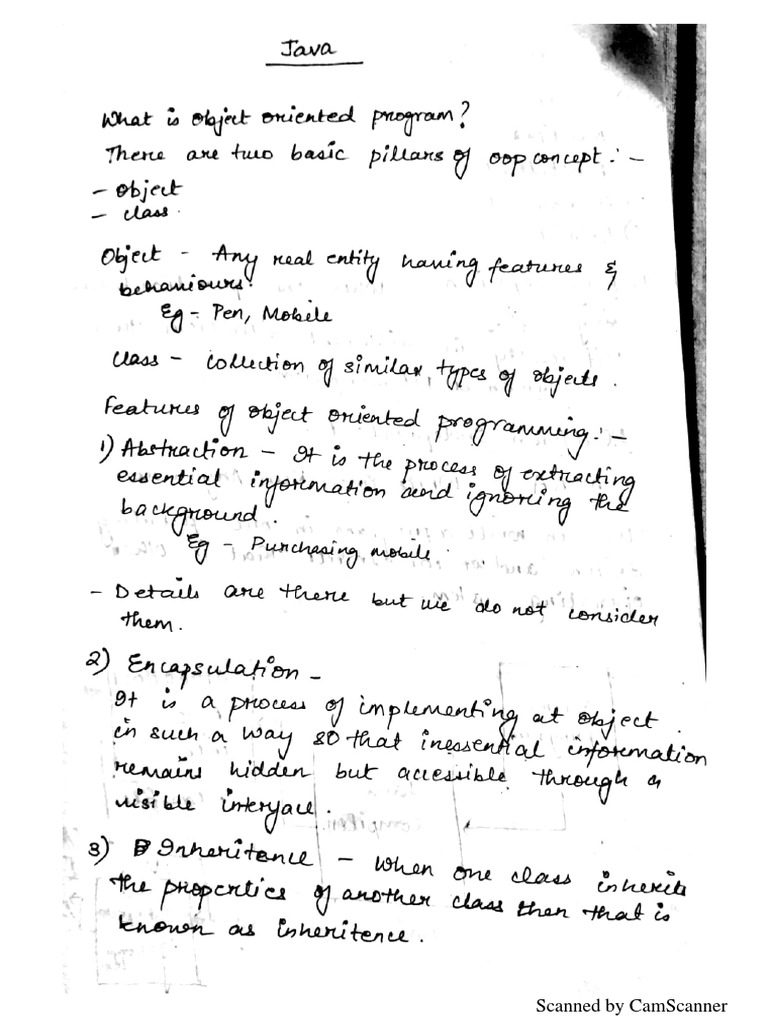 Java
What is object oriented program?
There are two basic pillars of oop concept :-
- object
- class.
Object - Any real entity having features &
behaviours.
Eg - Pen, Mobile
Class - collection of similar types of objects.
Features of object oriented programming :-
1) Abstraction - It is the process of extracting
essential information and ignoring the
background.
Eg - Purchasing mobile.
- Details are there but we do not consider
them.
2) Encapsulation -
It is a process of implementing at object
in such a way so that inessential information
remains hidden but accessible through a
visible interface.
3) Inheritence - when one class inherits
the properties of another class then that is
known as inheritence.
Scanned by CamScanner